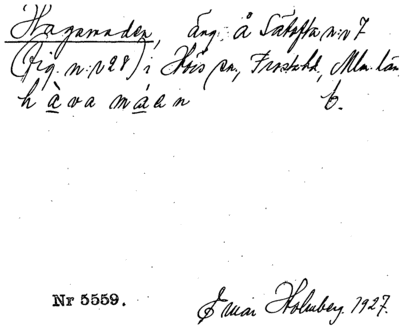 Hagamaden, äng å Sätofta n:r 7
(Fig. n:r 28) i Höös sn., Frosta hd, Mlm. län
hàva máen b.
Nr 5559.
Einar Holmberg. 1927.